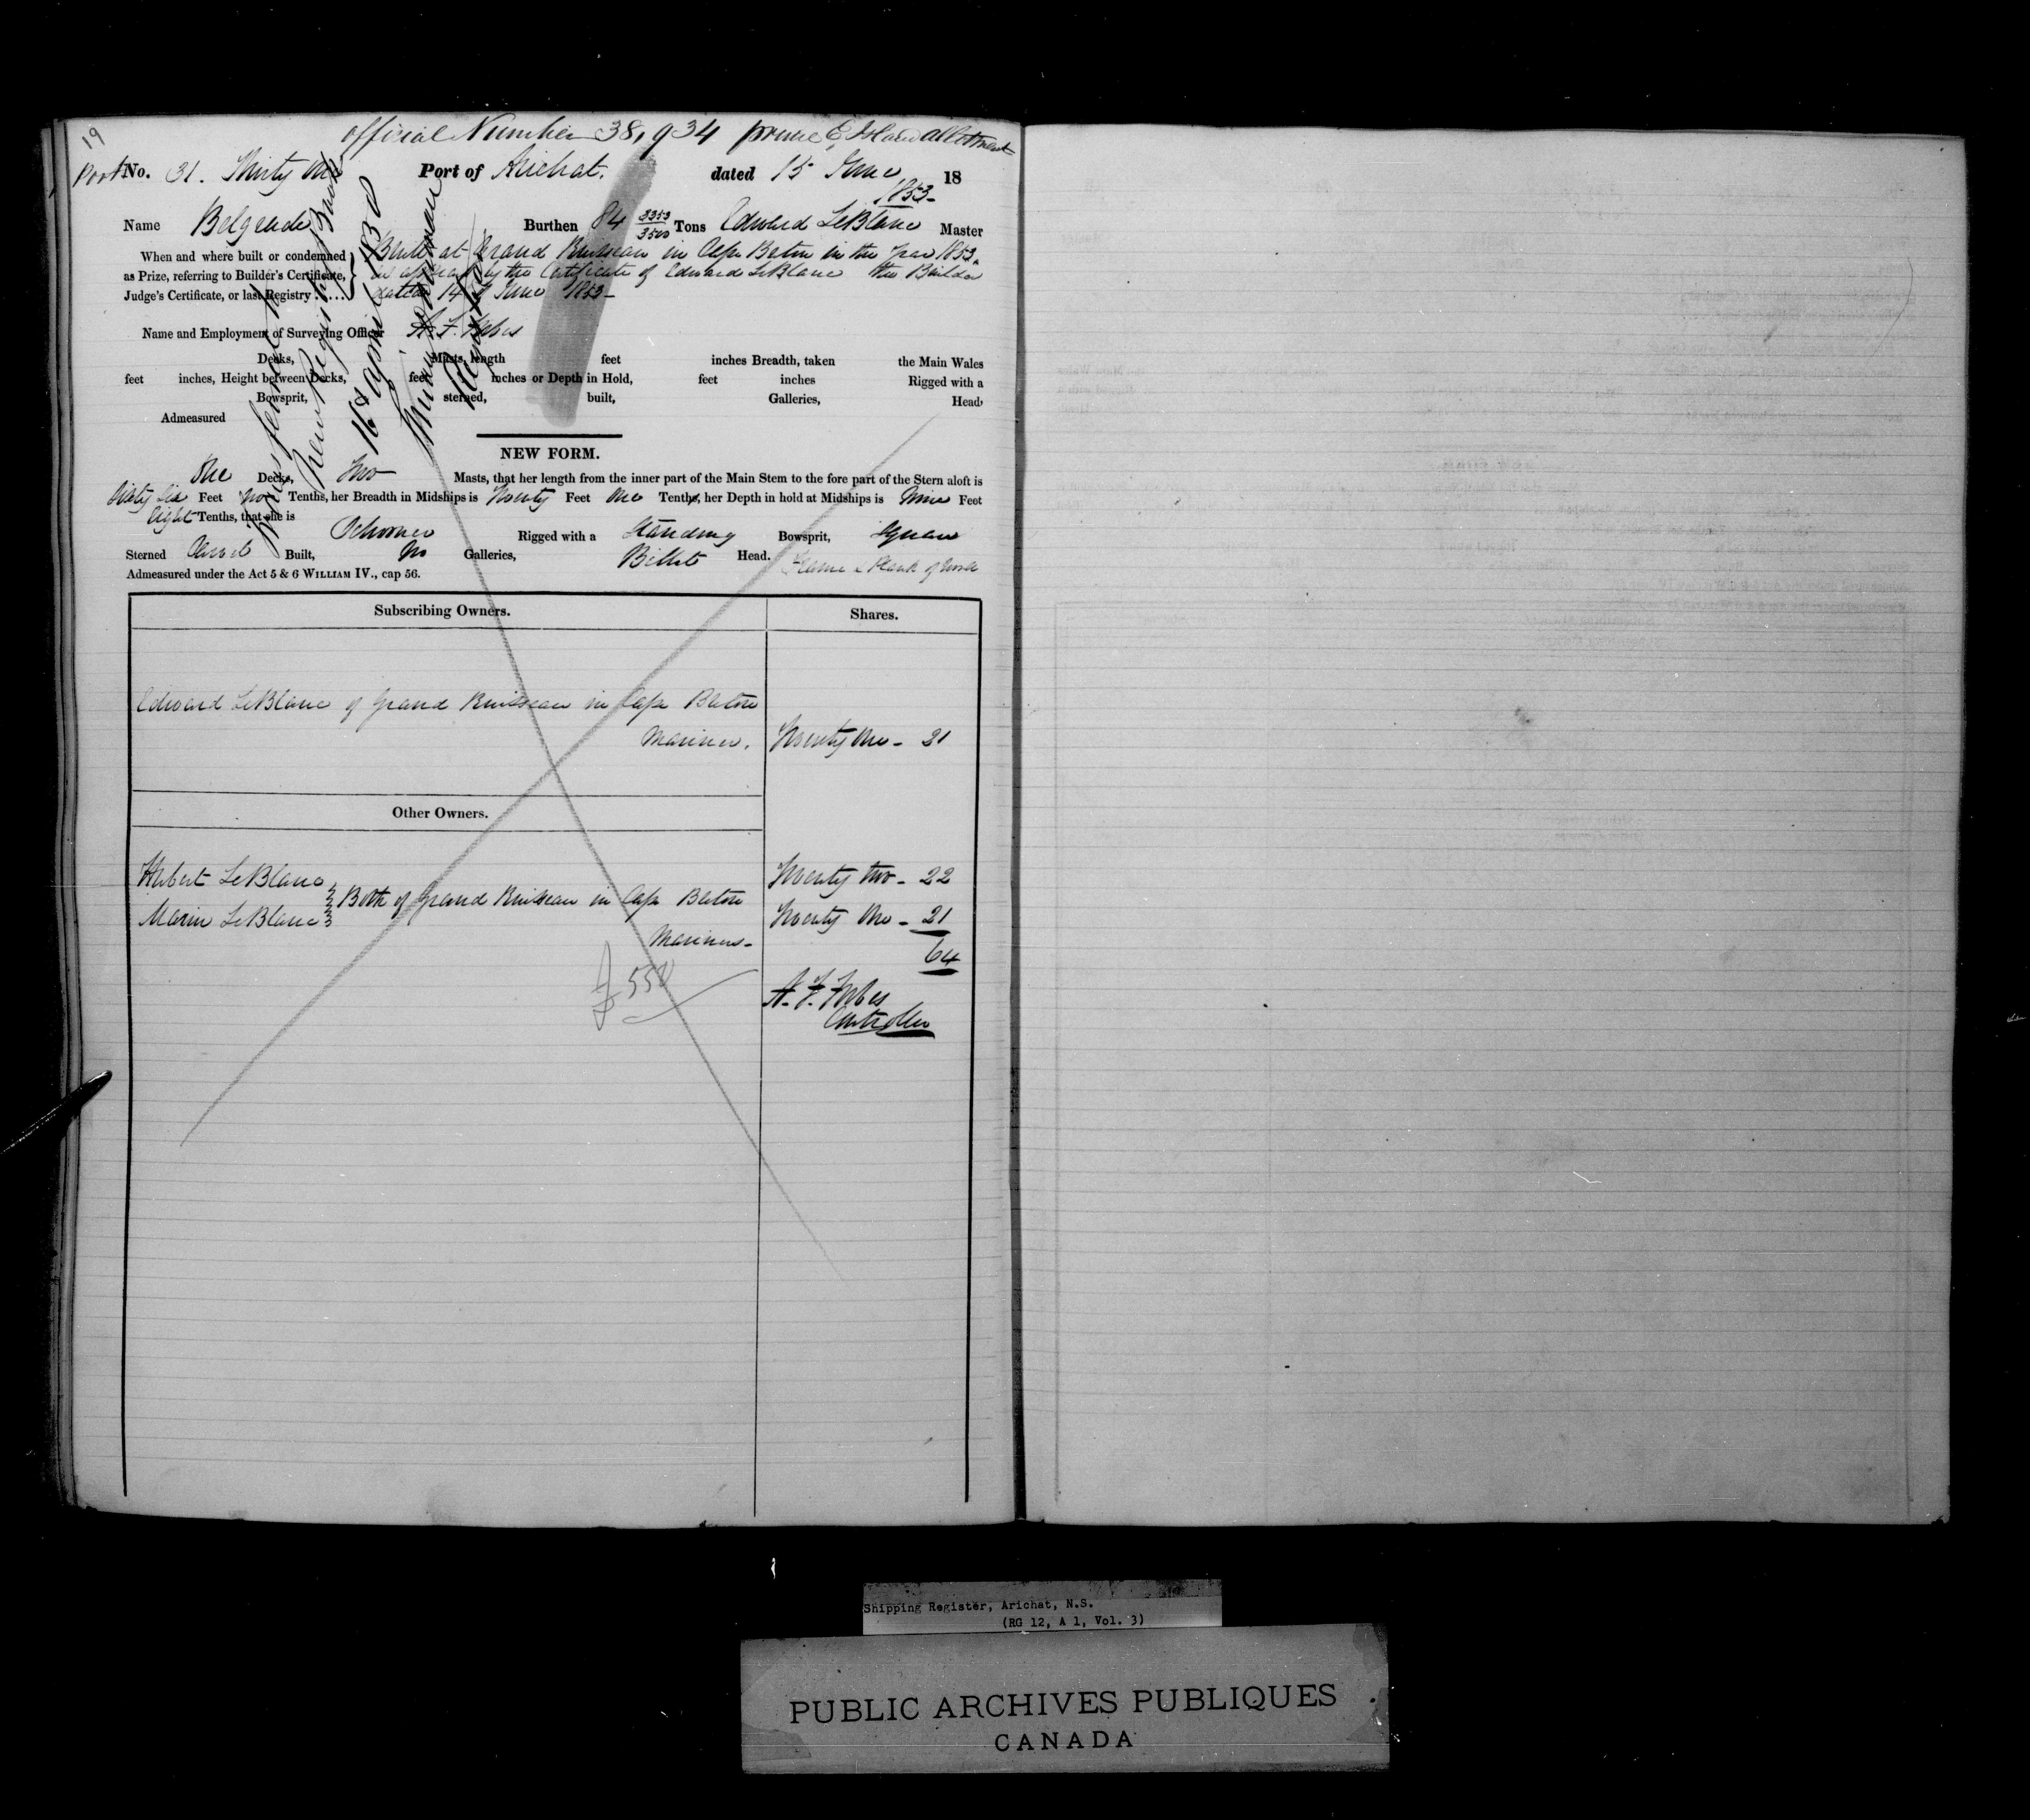 19
official Number 38,934 prince E. Island allottment
Port No. 31. Thirty One Port of Arichat. dated 15 June 18
1853-
Name Belgrade Burthen 84 3353/3500 Tons Edward LeBlanc Master
When and where built or condemned as Prize, referring to Builder's Certificate, Judge's Certificate, or last Registry ......
Built at Grand Ruisseau in Cape Breton in the year 1853.
as appears by the Certificate of Edward LeBlanc the Builder
dated 14th June 1853-
Name and Employment of Surveying Officer A. F. Forbes
Decks, Masts, length feet inches Breadth, taken the Main Wales
feet inches, Height between Decks, feet inches or Depth in Hold, feet inches Rigged with a
Bowsprit, sterned, built, Galleries, Head,
Admeasured
New Registry
16th April
Registrar
NEW FORM.
One Decks, Two Masts, that her length from the inner part of the Main Stem to the fore part of the Stern aloft is
Sixty Six Feet two Tenths, her Breadth in Midships is Twenty Feet One Tenths, her Depth in hold at Midships is Nine Feet
Eight Tenths, that she is
Schooner Rigged with a Standing Bowsprit, Square
Sterned Carvel Built, No Galleries, Billet Head. Frame & Plank of wood
Admeasured under the Act 5 & 6 WILLIAM IV., cap 56.
Subscribing Owners. Shares.
Edward LeBlanc of Grand Ruisseau in Cape Breton
Mariner. Twenty One - 21
Other Owners.
Hubert LeBlanc Twenty two - 22
Both of Grand Ruisseau in Cape Breton
Marin LeBlanc Twenty One - 21
Mariners-
64
A. F. Forbes
Controller
Shipping Register, Arichat, N.S.
(RG 12, A 1, Vol. 3)
PUBLIC ARCHIVES PUBLIQUES
CANADA